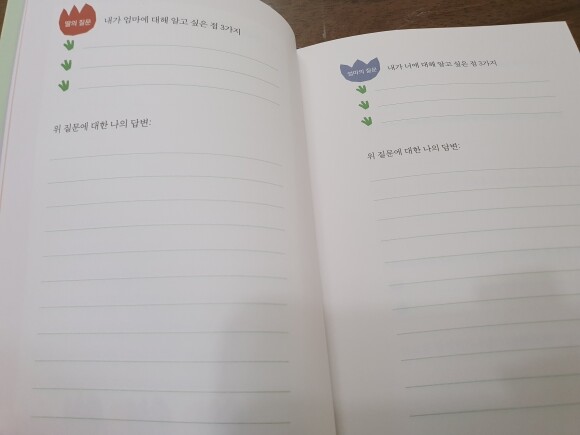 딸의 질문
내가 엄마에 대해 알고 싶은 점 3가지
위 질문에 대한 나의 답변:
엄마의 질문
내가 나에 대해 알고 싶은 점 3가지
위 질문에 대한 나의 답변: